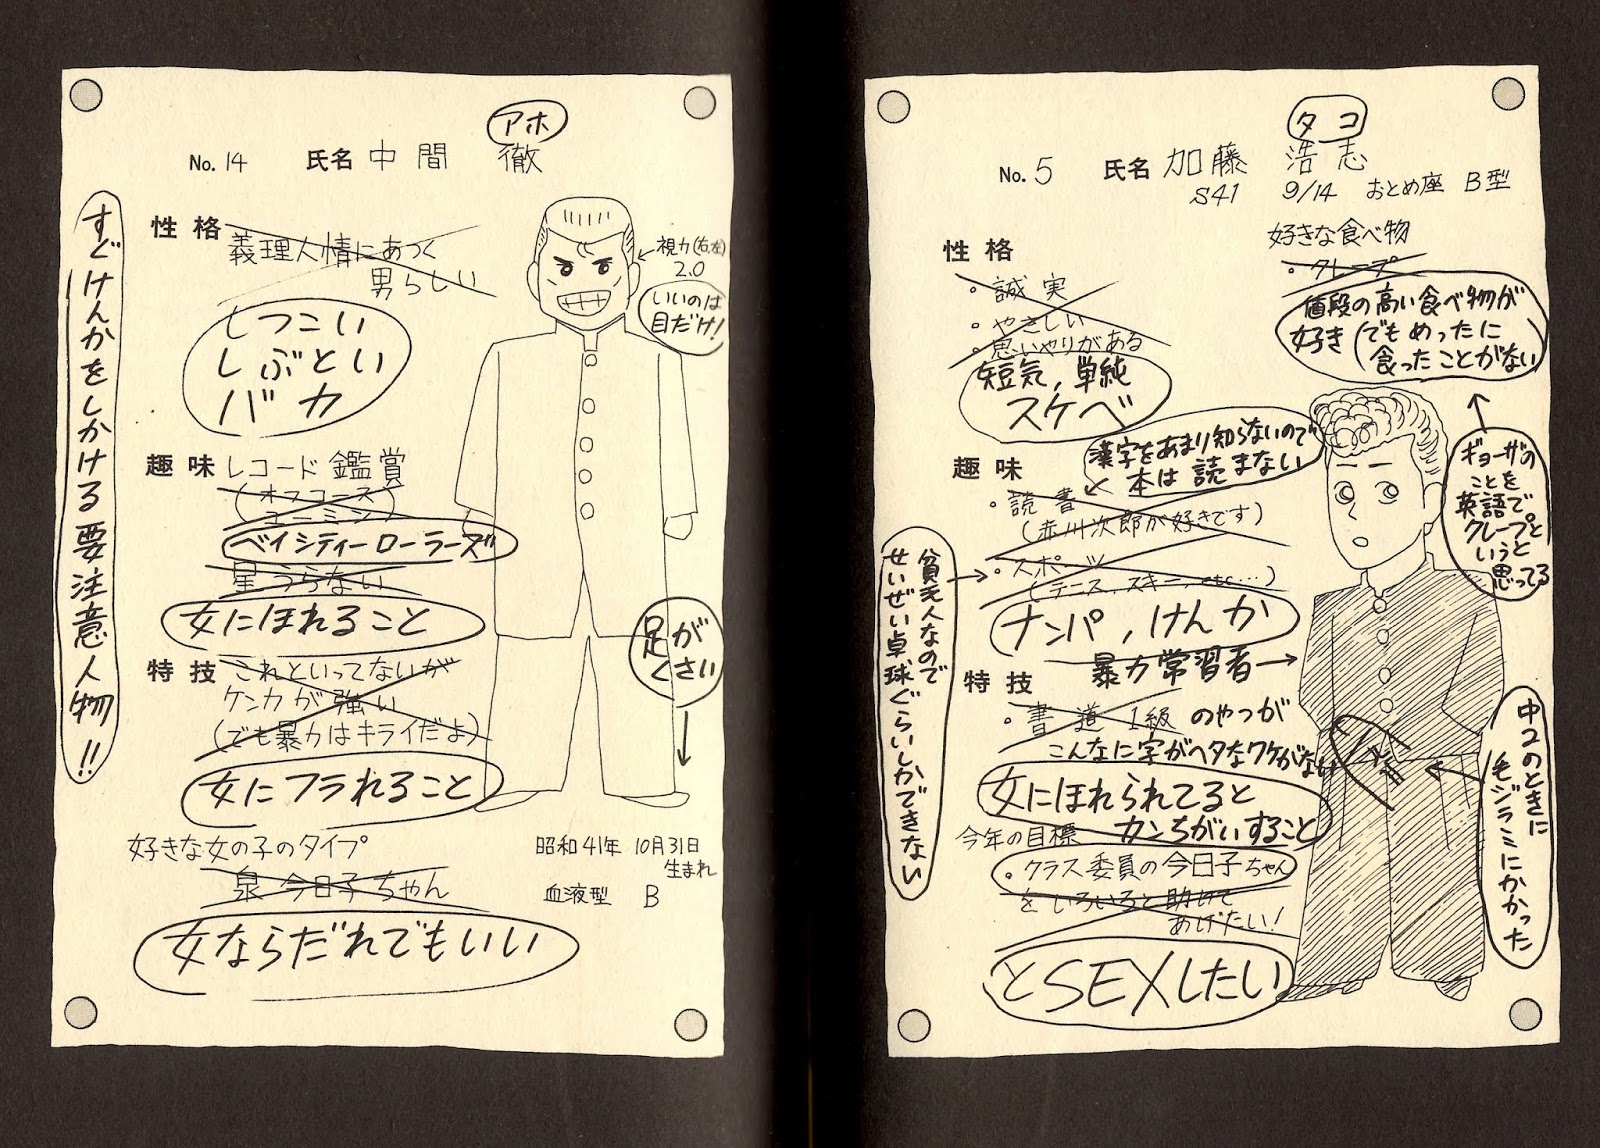 アホ
No. 14 氏名 中間 徹
すぐけんかをしかける要注意人物!!
性格
義理人情にあつく
男らしい
しつこい
しぶとい
バカ
視力(右左)
2.0
いいのは
目だけ!
趣味 レコード鑑賞
(オフコース
ユーミン)
ベイシティーローラーズ
星うらない
女にほれること
特技 これといってないが
ケンカが強い
(でも暴力はキライだよ)
女にフラれること
足が
くさい
好きな女の子のタイプ
泉 今日子ちゃん
女ならだれでもいい
昭和41年 10月31日
生まれ
血液型 B
タコ
No. 5 氏名 加藤 浩志
S41 9/14 おとめ座 B型
性格
・誠実
・やさしい
・思いやりがある
短気,単純
スケベ
好きな食べ物
・クレープ
値段の高い食べ物が
好き(でもめったに
食ったことがない
ギョーザの
ことを
英語で
クレープと
いうと
思ってる
趣味
漢字をあまり知らないので
本は読まない
・読書
(赤川次郎が好きです)
・スポーツ
(テニス,スキー,etc…)
貧乏人なので
せいぜい卓球ぐらいしかできない
ナンパ,けんか
暴力常習者→
特技
・書道1級 のやつが
こんなに字がヘタなワケがない
女にほれられてると
カンちがいすること
中2のときに
毛ジラミにかかった
今年の目標
・クラス委員の今日子ちゃん
をいろいろと助けて
あげたい!
とSEXしたい